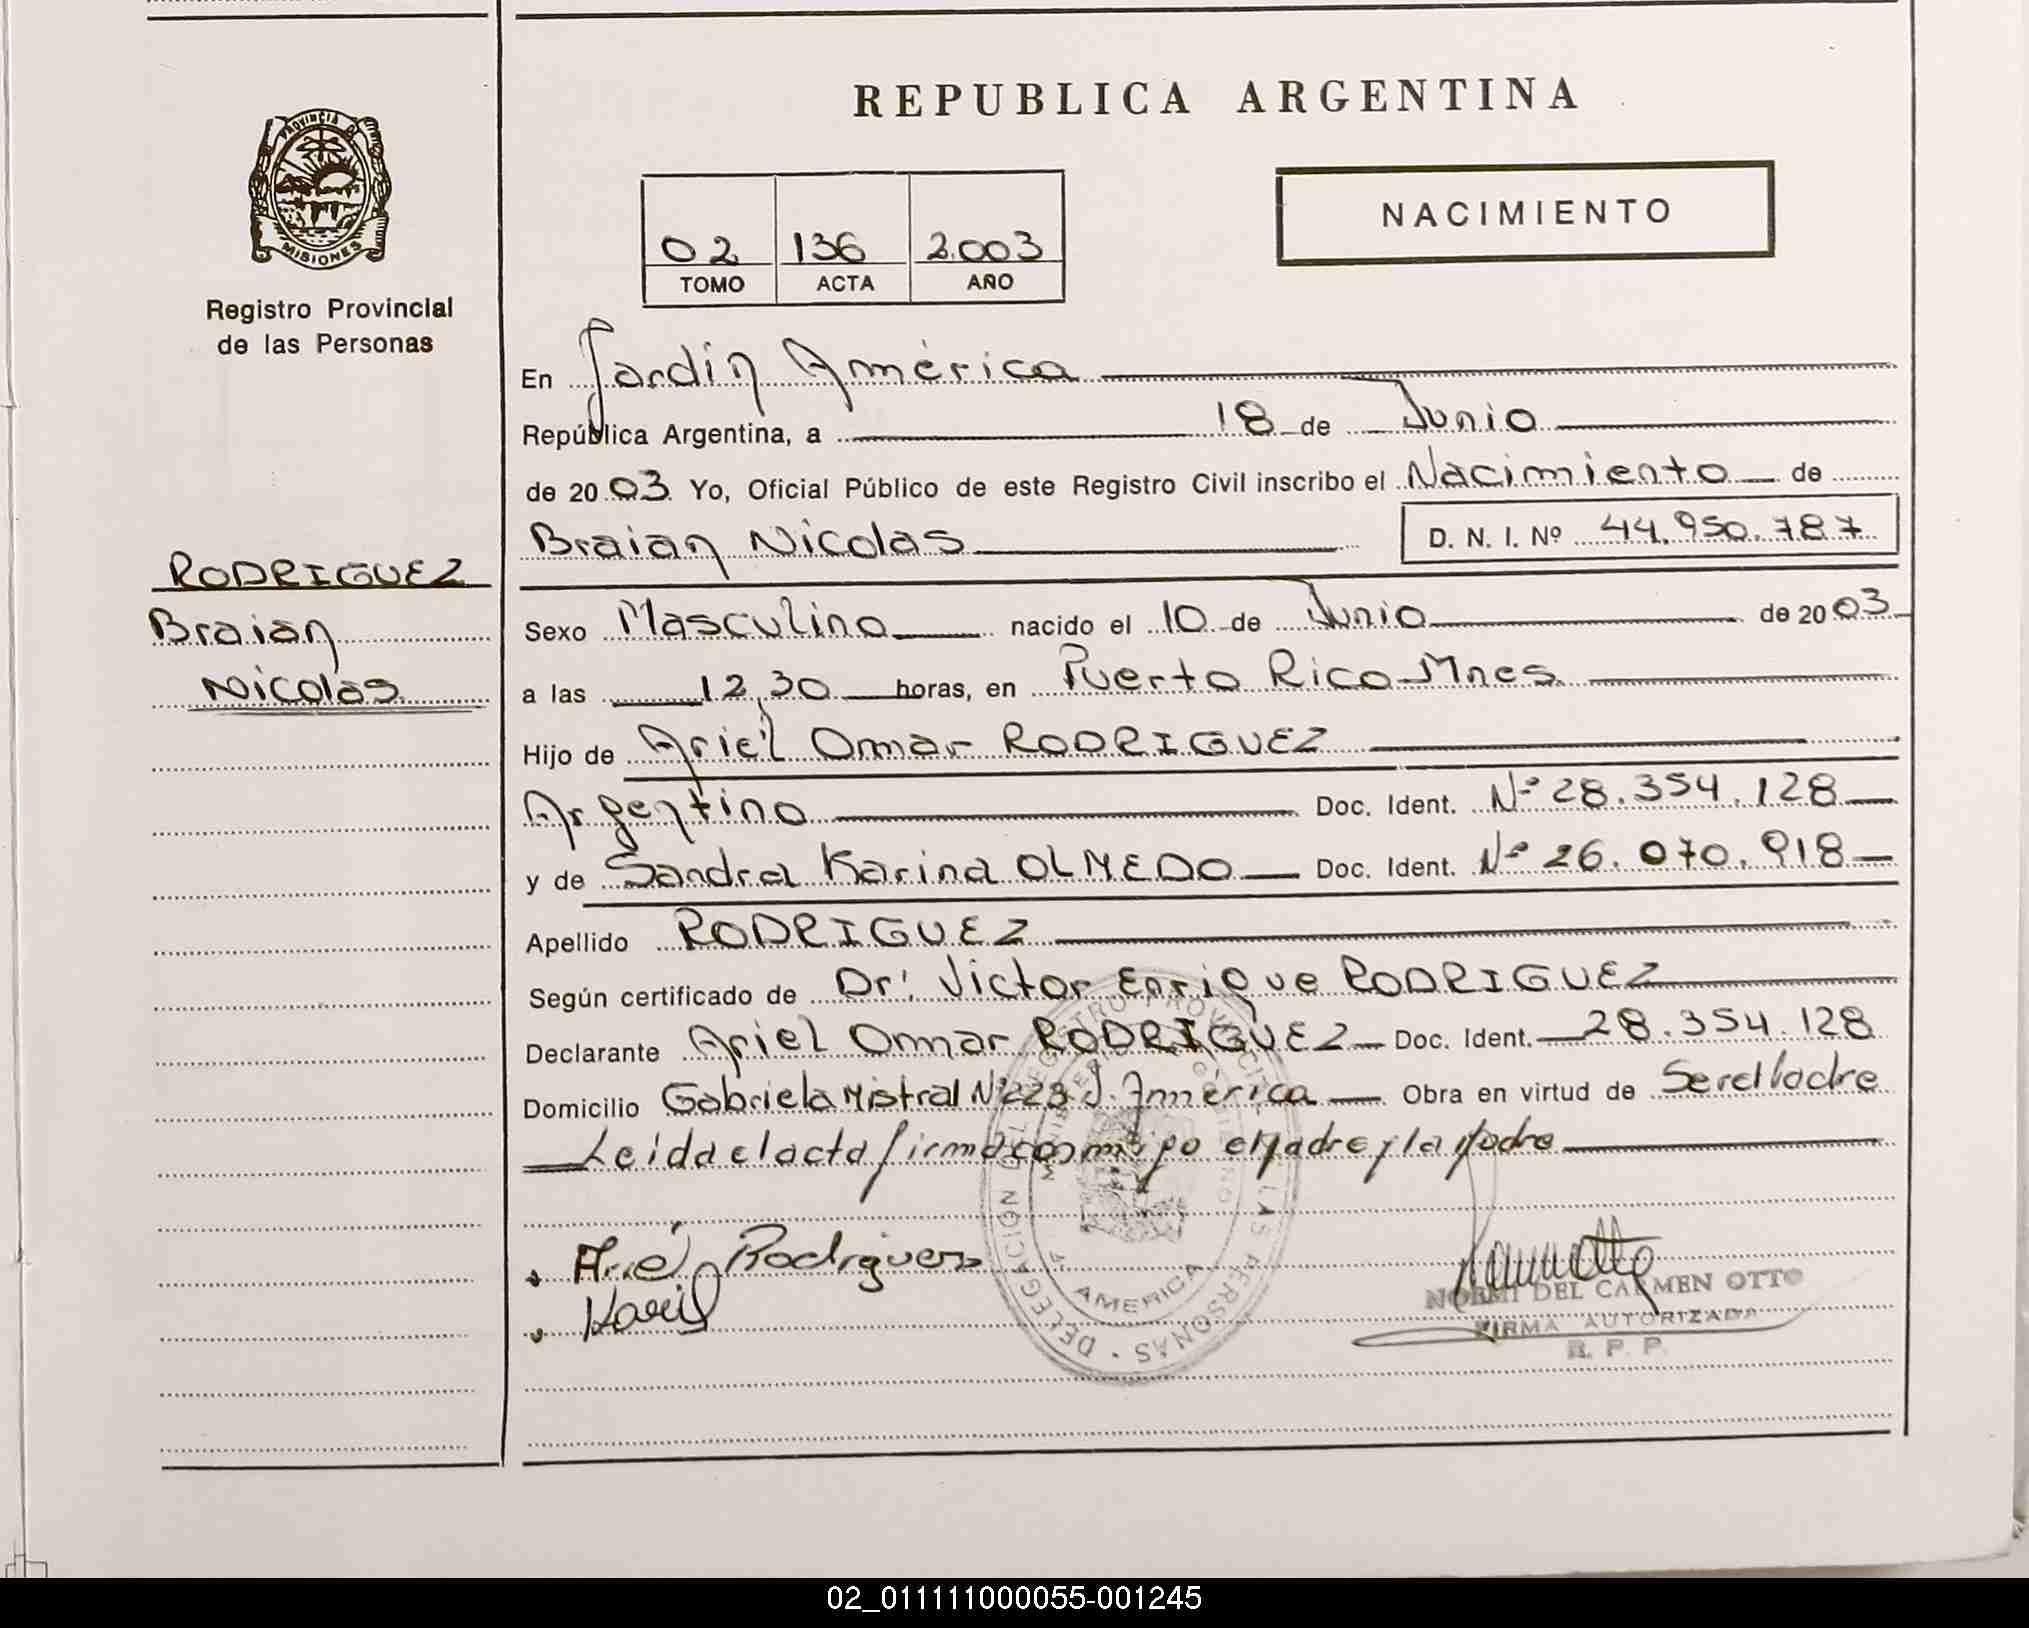 REPUBLICA ARGENTINA
PROVINCIA DE
MISIONES
Registro Provincial
de las Personas
02 136 2.003
TOMO ACTA AÑO
NACIMIENTO
En Jardín América
República Argentina, a 18 de Junio
de 2003 Yo, Oficial Público de este Registro Civil inscribo el Nacimiento de
Braian Nicolas D. N. I. Nº 44.950.787
RODRIGUEZ
Braian
Nicolás
Sexo Masculino nacido el 10 de Junio de 2003
a las 12,30 horas, en Puerto Rico Mnes
Hijo de Ariel Omar RODRIGUEZ
Argentino Doc. Ident. Nº 28.354.128
y de Sandra Karina OLMEDO Doc. Ident. Nº 26.070.918
Apellido RODRIGUEZ
Según certificado de Dr. Victor Enrique RODRIGUEZ
Declarante Ariel Omar RODRIGUEZ Doc. Ident. 28.354.128
Domicilio Gabriela Mistral Nº 223 J. América Obra en virtud de Ser el Padre
Leida el acta firma conmigo el Padre y la Madre
Rodriguez
NORMI DEL CARMEN OTTO
FIRMA AUTORIZADA
R. P. P.
DELEGACION DEL REGISTRO PROVINCIAL DE LAS PERSONAS
AMERICA
02_011111000055-001245